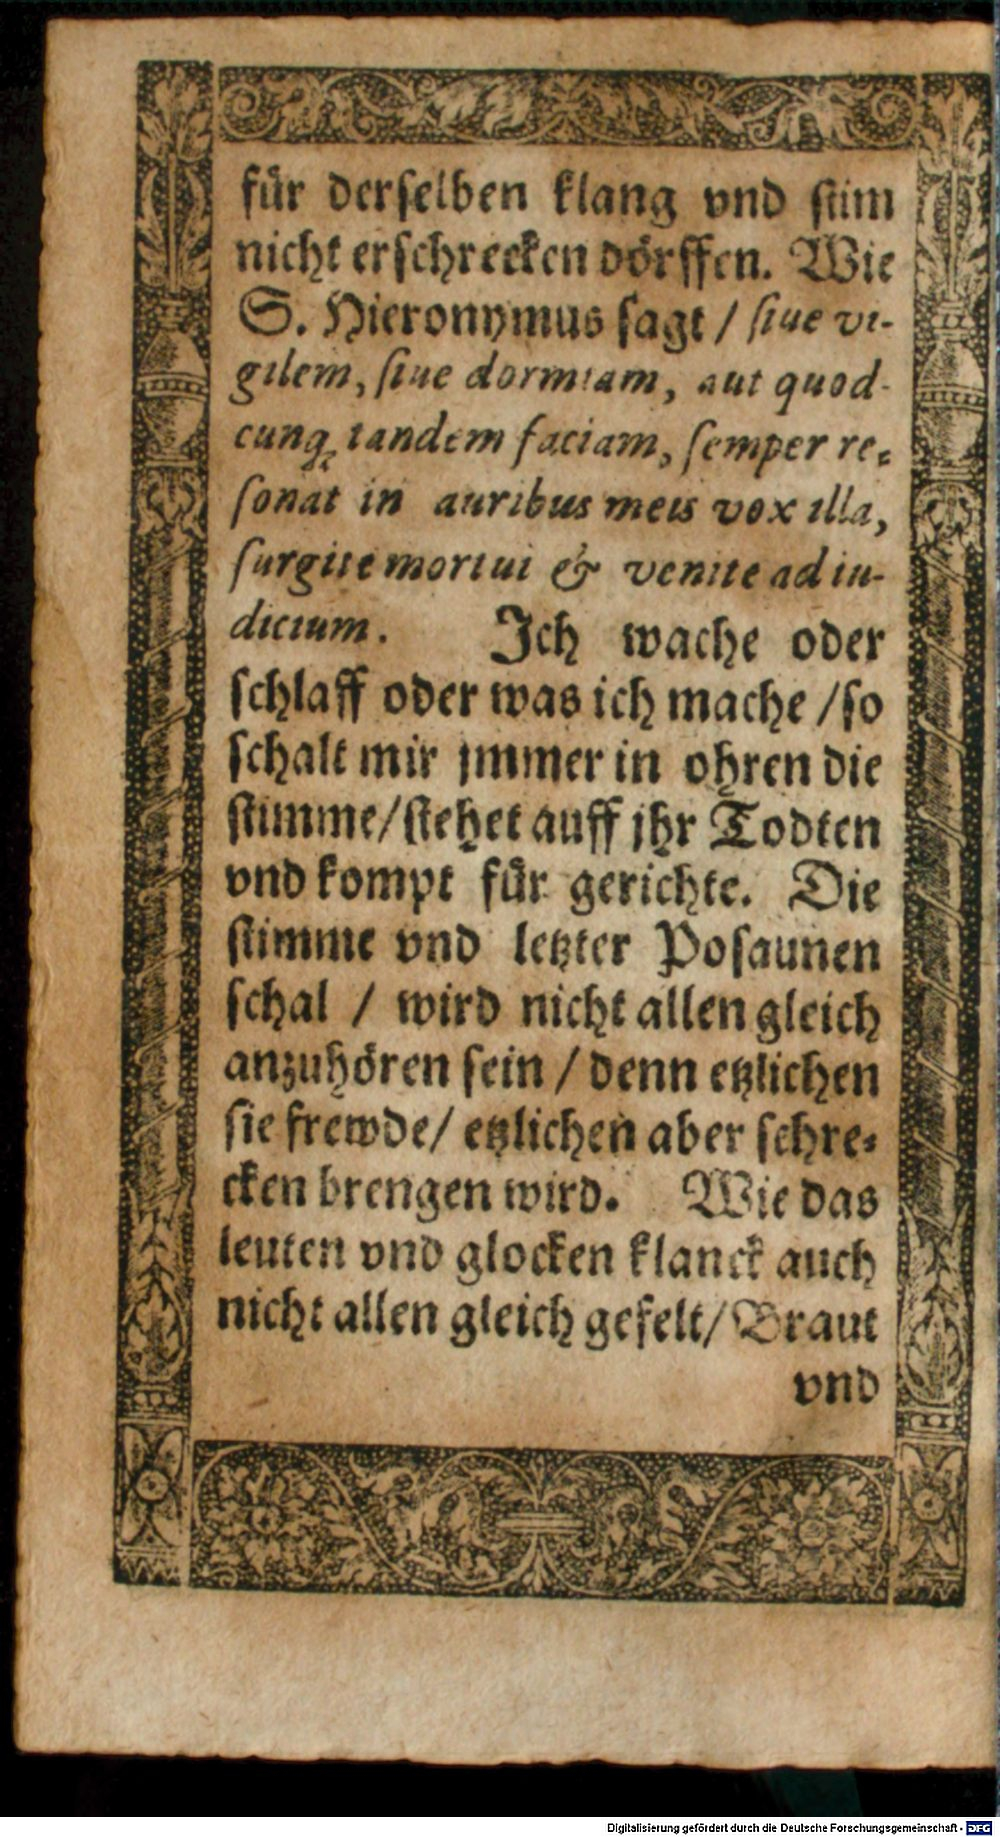 für derſelben klang vnd ſtim
nicht erſchrecken dörffen. Wie
S. Hieronymus ſagt / ſiue vi-
gilem, ſiue dormiam, aut quod-
cunq; tandem faciam, ſemper re-
ſonat in auribus meis vox illa,
ſurgite mortui & venite ad iu-
dicium. Ich wache oder
ſchlaff oder was ich mache / ſo
ſchalt mir jmmer in ohren die
ſtimme / ſtehet auff jhr Todten
vnd kompt für gerichte. Die
ſtimme vnd letzter Poſaunen
ſchal / wird nicht allen gleich
anzuhören ſein / denn etzlichen
ſie frewde / etzlichen aber ſchre-
cken brengen wird. Wie das
leuten vnd glocken klanck auch
nicht allen gleich gefelt / Braut
vnd
Digitalisierung gefördert durch die Deutsche Forschungsgemeinschaft - DFG